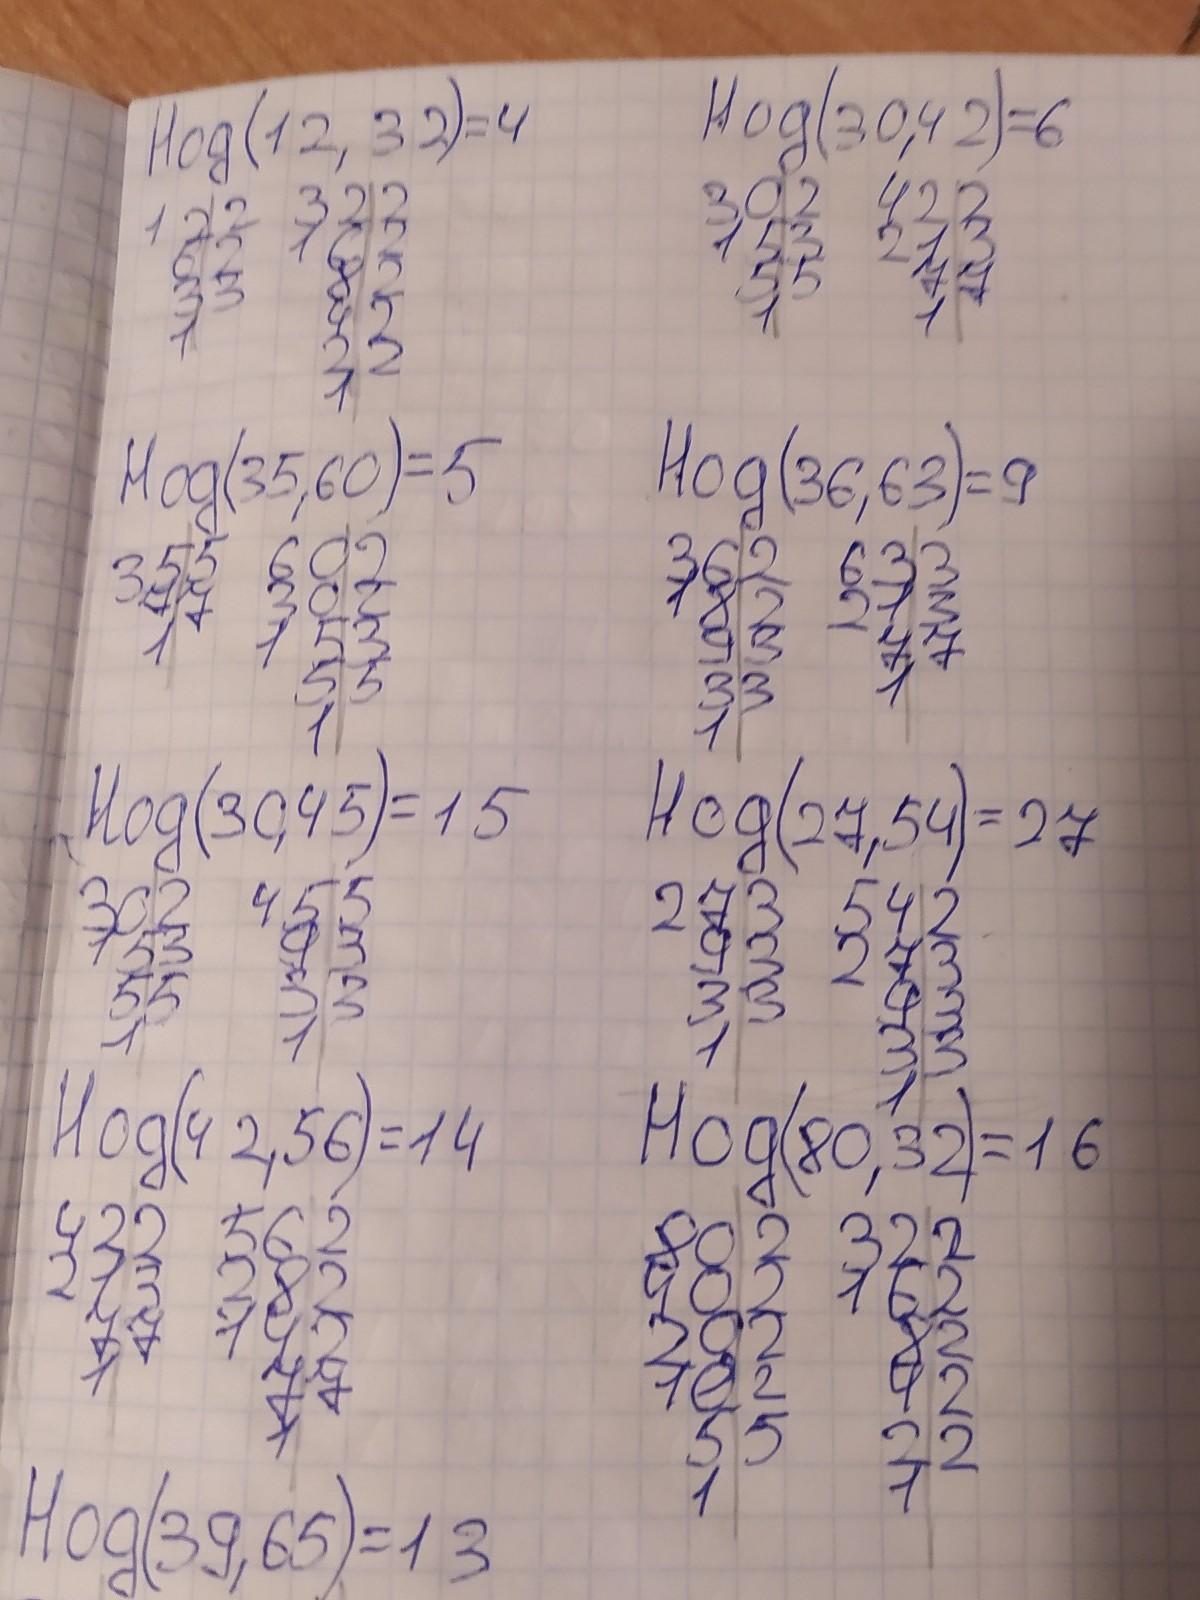 Ног(12, 32)=4
12|2
6|2
3|3
1
32|2
16|2
8|2
4|2
2|2
1
Ног(30,42)=6
30|2
15|3
5|5
1
42|2
21|3
7|7
1
Ног(35,60)=5
35|5
7|7
1
60|2
30|2
15|3
5|5
1
Ног(36,63)=9
36|2
18|2
9|3
3|3
1
63|3
21|3
7|7
1
Ног(30,45)=15
30|2
15|3
5|5
1
45|5
9|3
3|3
1
Ног(27,54)=27
27|3
9|3
3|3
1
54|2
27|3
9|3
3|3
1
Ног(42,56)=14
42|2
21|3
7|7
1
56|2
28|2
14|2
7|7
1
Ног(80,32)=16
80|2
40|2
20|2
10|2
5|5
1
32|2
16|2
8|2
4|2
2|2
1
Ног(39,65)=13